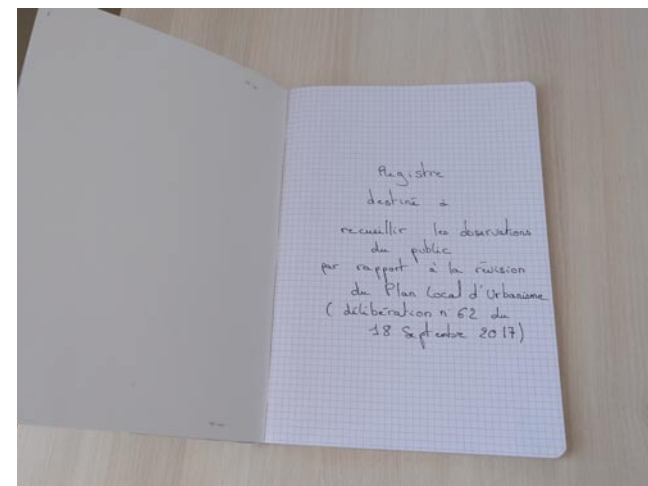 Registre
destiné à
recueillir les observations
du public
par rapport à la révision
du Plan Local d'Urbanisme
( délibération n° 62 du
18 Septembre 2017)